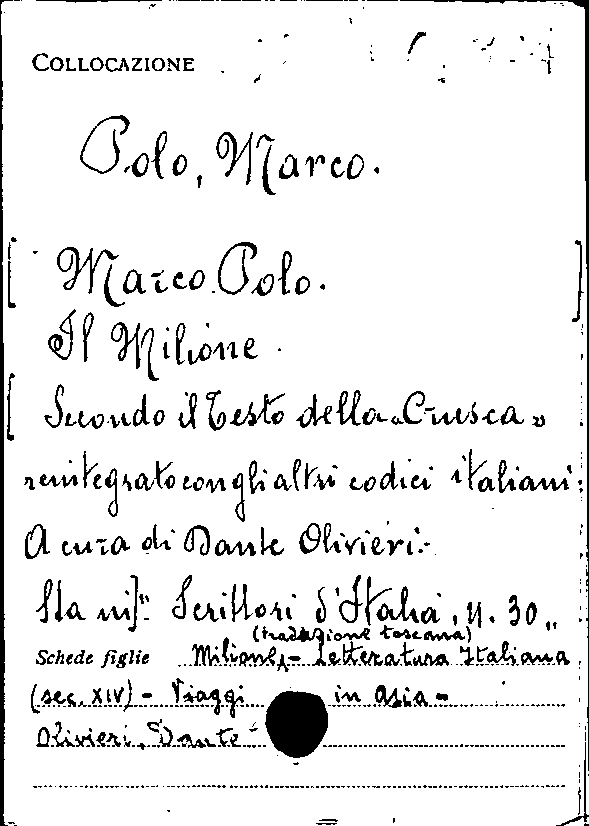 COLLOCAZIONE
Polo, Marco.
[Marco Polo.]
Il Milione.
[Secondo il Testo della «Crusca»
reintegrato con gli altri codici italiani:
A cura di Dante Olivieri.
Sta in] "Scrittori d'Italia, n. 30"
(traduzione toscana)
Schede figlie Milione, - Letteratura Italiana
(sec. XIV) - Viaggi in Asia -
Olivieri, Dante -